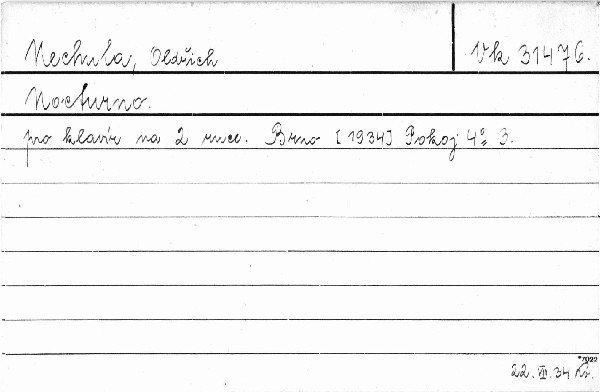 Nechuta, Oldřich
Vk 31476.
Nocturno.
pro klavír na 2 ruce. Brno [1934] Pokoj 4° 3.
*7022
22. VIII. 34 Kr.